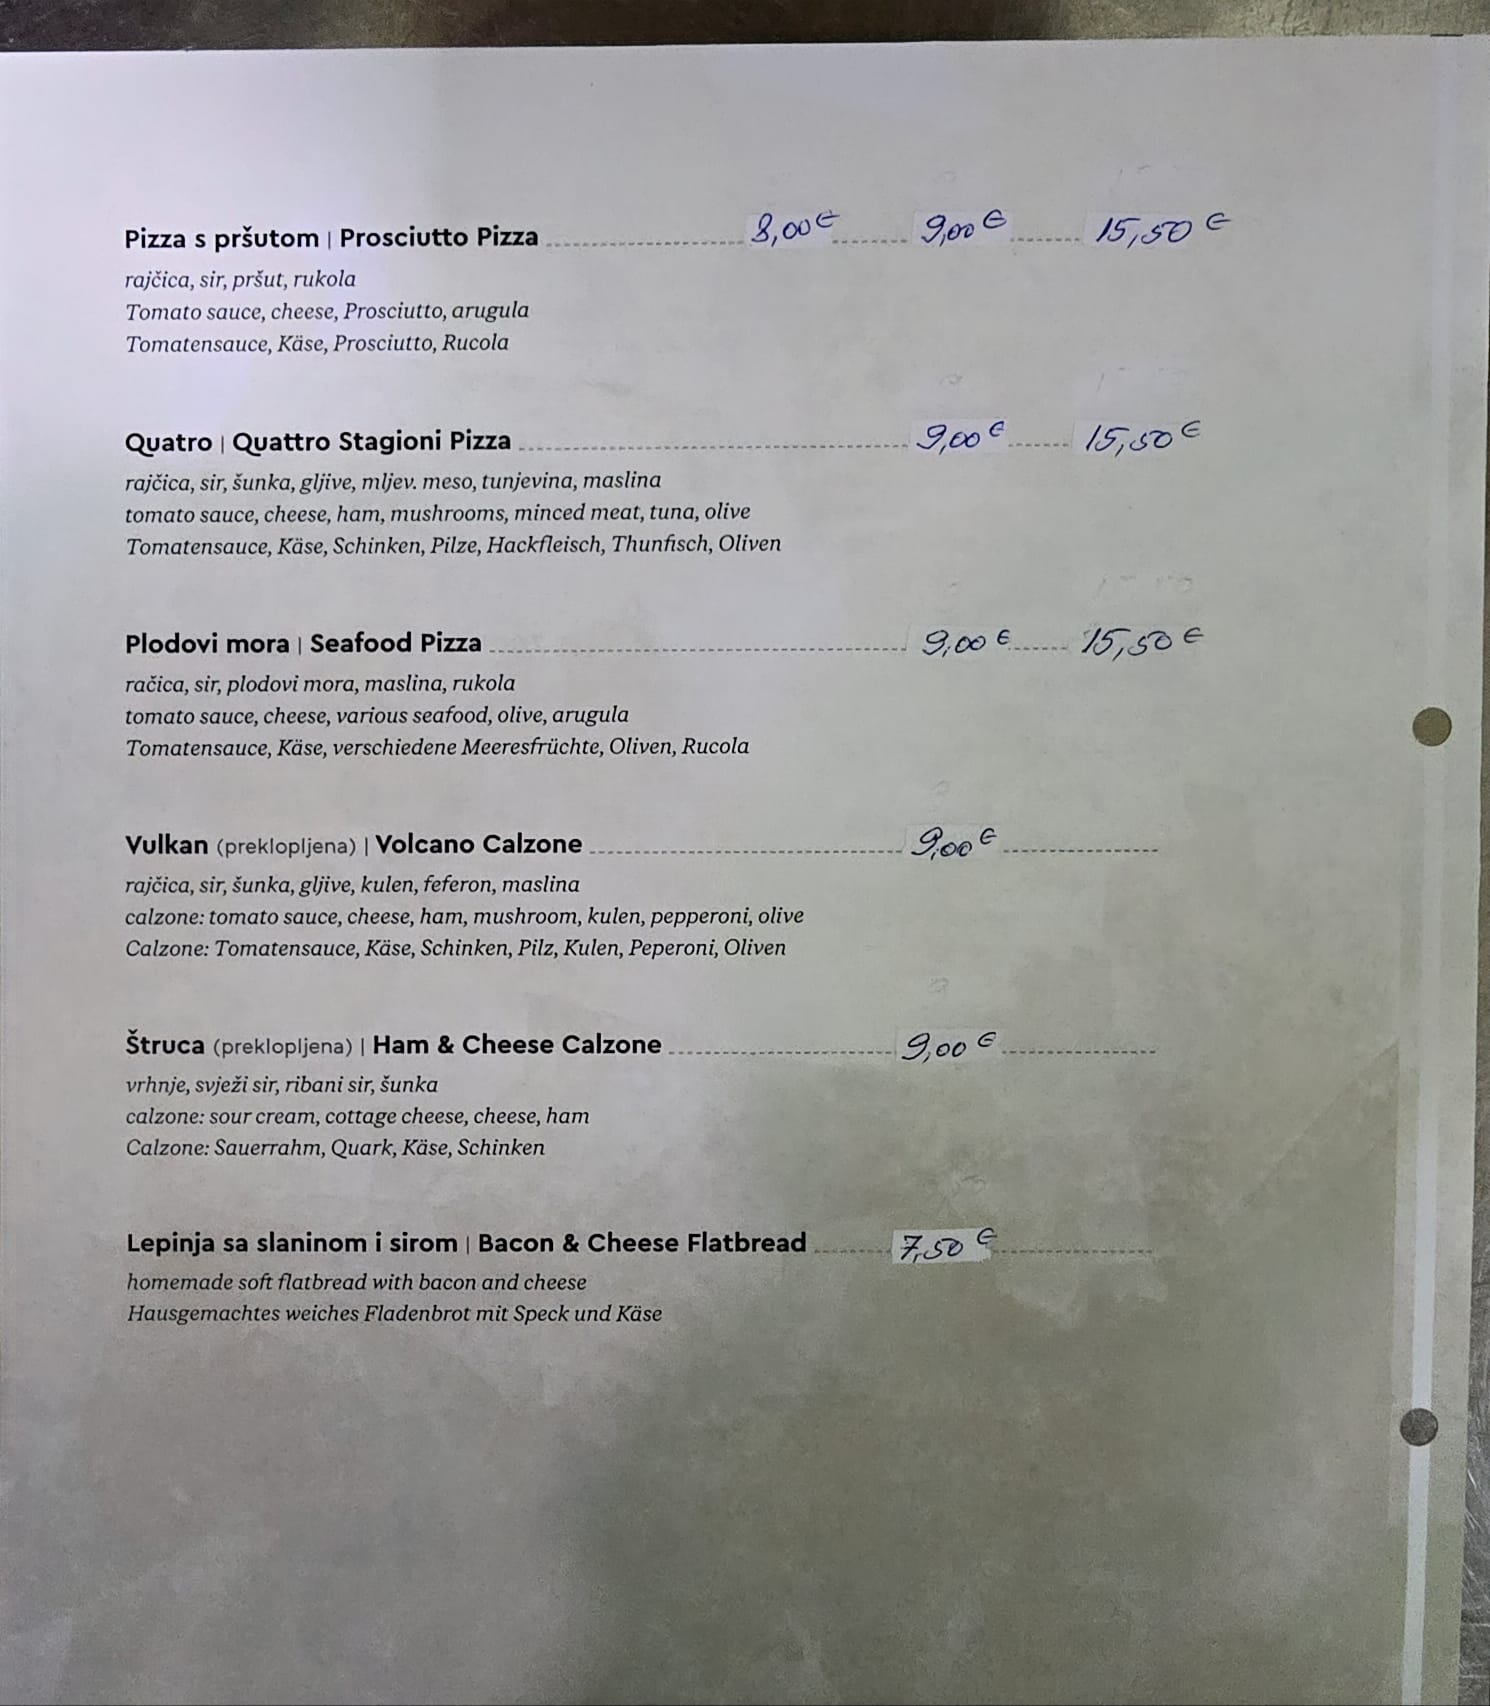 Pizza s pršutom | Prosciutto Pizza 8,00 € 9,00 € 15,50 €
rajčica, sir, pršut, rukola
Tomato sauce, cheese, Prosciutto, arugula
Tomatensauce, Käse, Prosciutto, Rucola
Quatro | Quattro Stagioni Pizza 9,00 € 15,50 €
rajčica, sir, šunka, gljive, mljev. meso, tunjevina, maslina
tomato sauce, cheese, ham, mushrooms, minced meat, tuna, olive
Tomatensauce, Käse, Schinken, Pilze, Hackfleisch, Thunfisch, Oliven
Plodovi mora | Seafood Pizza 9,00 € 15,50 €
račica, sir, plodovi mora, maslina, rukola
tomato sauce, cheese, various seafood, olive, arugula
Tomatensauce, Käse, verschiedene Meeresfrüchte, Oliven, Rucola
Vulkan (preklopljena) | Volcano Calzone 9,00 €
rajčica, sir, šunka, gljive, kulen, feferon, maslina
calzone: tomato sauce, cheese, ham, mushroom, kulen, pepperoni, olive
Calzone: Tomatensauce, Käse, Schinken, Pilz, Kulen, Peperoni, Oliven
Štruca (preklopljena) | Ham & Cheese Calzone 9,00 €
vrhnje, svježi sir, ribani sir, šunka
calzone: sour cream, cottage cheese, cheese, ham
Calzone: Sauerrahm, Quark, Käse, Schinken
Lepinja sa slaninom i sirom | Bacon & Cheese Flatbread 7,50 €
homemade soft flatbread with bacon and cheese
Hausgemachtes weiches Fladenbrot mit Speck und Käse